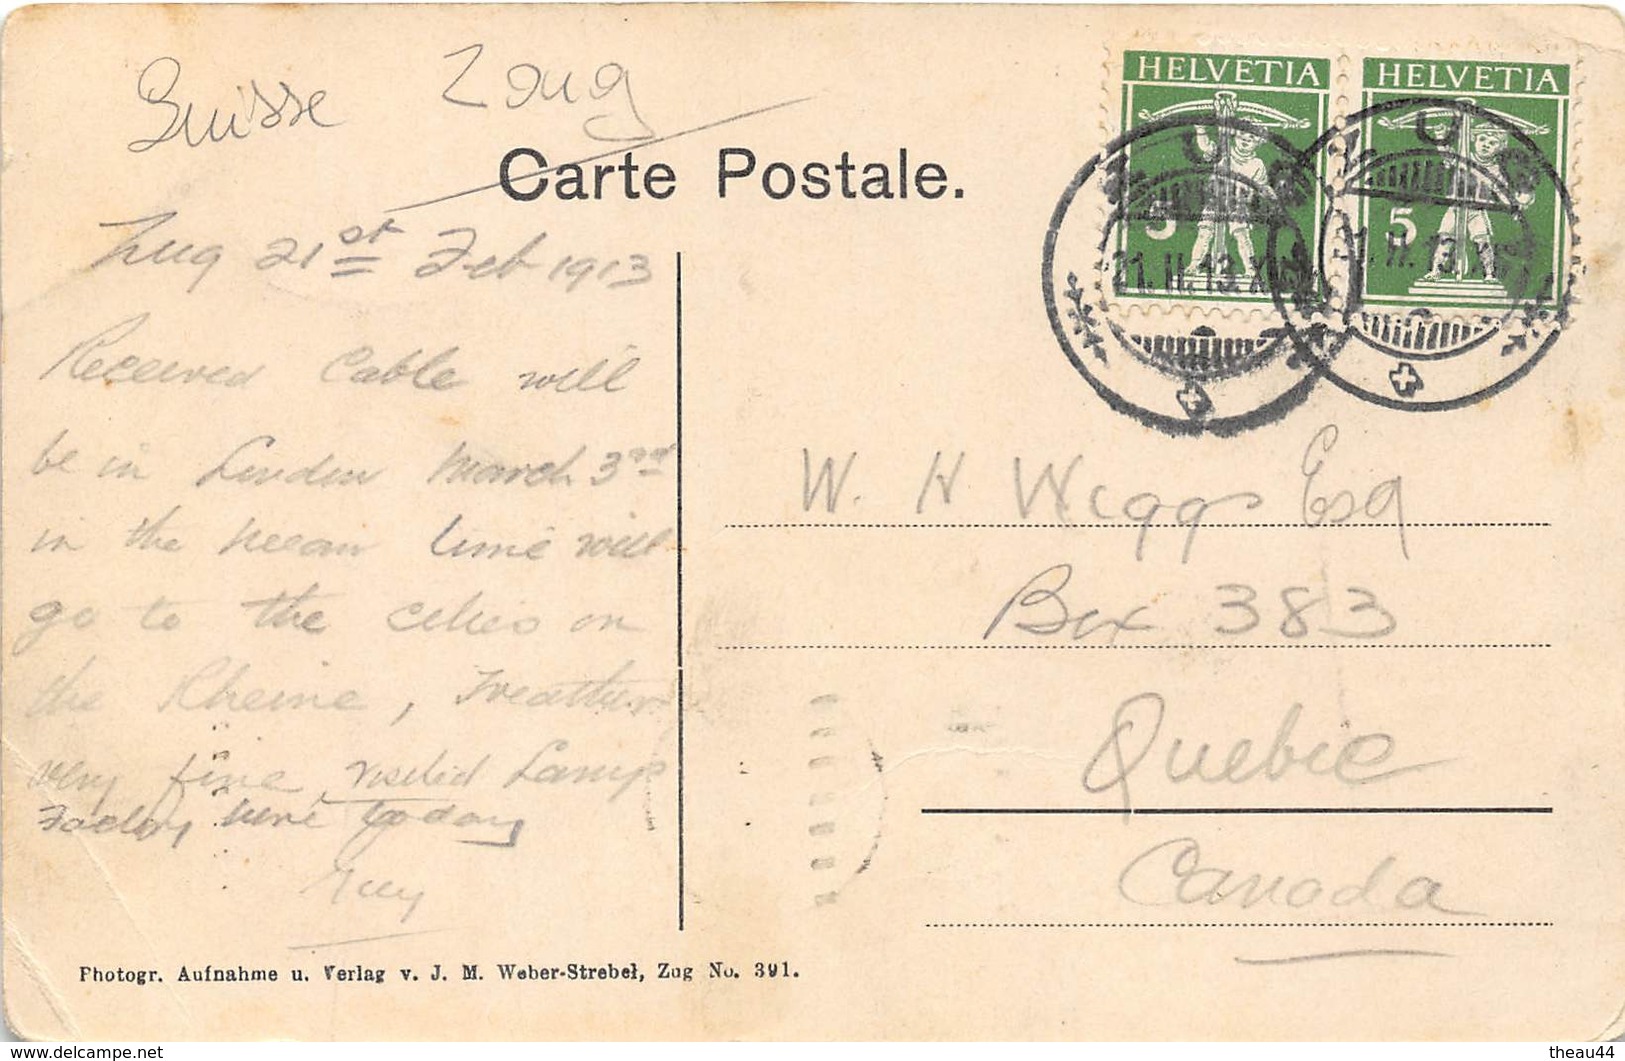 Suisse Zoug
HELVETIA HELVETIA
Carte Postale.
ZUG ZUG
5 5
21.II.13.X 1.II.13.X
Zug 21st Feb 1913
Received Cable will
be in London March 3rd
in the mean time will
go to the cities on
the Rheine, Weather
very fine visited Lamp
Factory here today
Guy
W. H Wiggs Esq
Box 383
Quebec
Canada
Photogr. Aufnahme u. Verlag v. J. M. Weber-Strebel, Zug No. 391.
http://www.delcampe.net
theau44